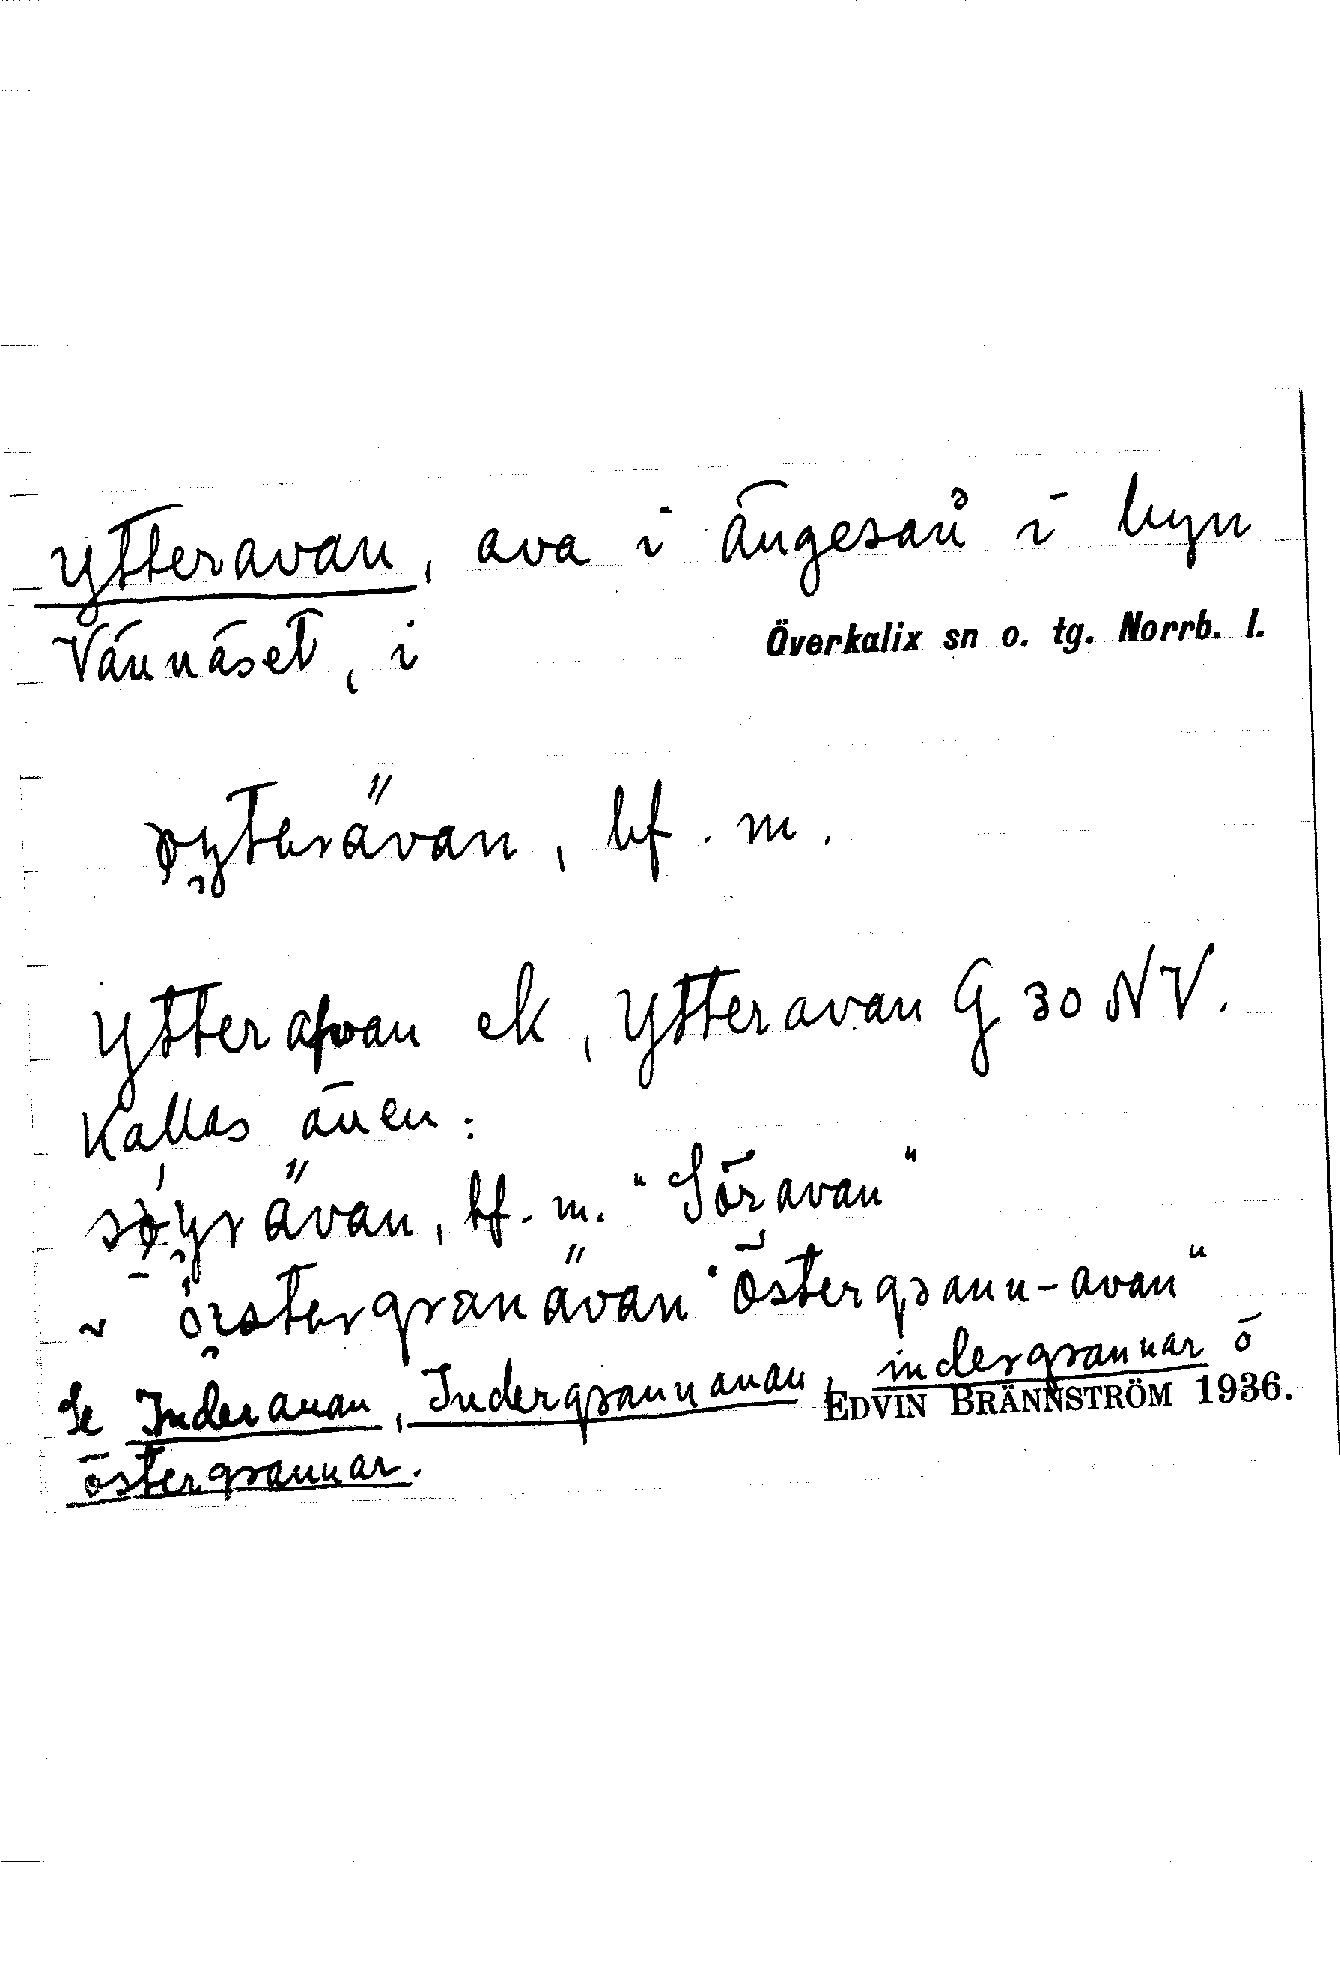 Ytteravan, ava i Ängesån i byn
Vännäset, i Överkalix sn o. tg. Norrb. l.
øyterävan, bf. m.
Ytterafvan ek, Ytteravan G 30 NV.
Kallas även:
søyrävan, bf. m. "Söravan"
~ örstergranävan "Östergrann-avan"
Se Inderavan, Indergrannavan, indergrannar o
östergrannar.
EDVIN BRÄNNSTRÖM 1936.